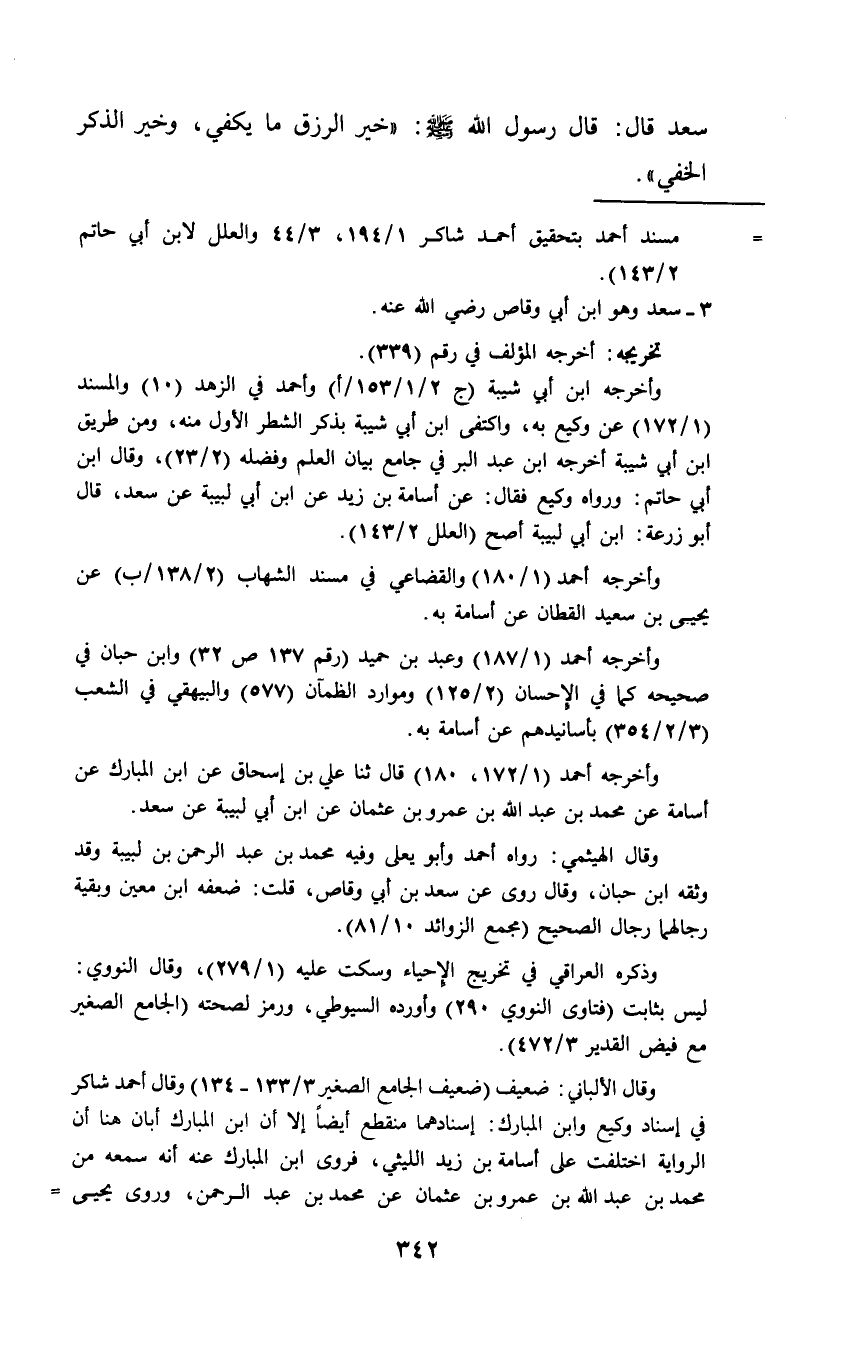 سعد قال: قال رسول الله ﷺ: «خير الرزق ما يكفي، وخير الذكر
الخفي».
= مسند أحمد بتحقيق أحمد شاكر ١٩٤/١، ٤٤/٣ والعلل لابن أبي حاتم
١٤٣/٢).
٣ ـ سعد وهو ابن أبي وقاص رضي الله عنه.
تخريجه: أخرجه المؤلف في رقم (٣٣٩).
وأخرجه ابن أبي شيبة (ج ١٥٣/١/٢/أ) وأحمد في الزهد (١٠) والمسند
(١٧٢/١) عن وكيع به، واكتفى ابن أبي شيبة بذكر الشطر الأول منه، ومن طريق
ابن أبي شيبة أخرجه ابن عبد البر في جامع بيان العلم وفضله (٢٣/٢)، وقال ابن
أبي حاتم: ورواه وكيع فقال: عن أسامة بن زيد عن ابن أبي لبيبة عن سعد، قال
أبو زرعة: ابن أبي لبيبة أصح (العلل ١٤٣/٢).
وأخرجه أحمد (١٨٠/١) والقضاعي في مسند الشهاب (١٣٨/٢/ب) عن
يحيى بن سعيد القطان عن أسامة به.
وأخرجه أحمد (١٨٧/١) وعبد بن حميد (رقم ١٣٧ ص ٣٢) وابن حبان في
صحيحه كما في الإحسان (١٢٥/٢) وموارد الظمآن (٥٧٧) والبيهقي في الشعب
(٣٥٤/٢/٣) بأسانيدهم عن أسامة به.
وأخرجه أحمد (١٧٢/١، ١٨٠) قال ثنا علي بن إسحاق عن ابن المبارك عن
أسامة عن محمد بن عبد الله بن عمرو بن عثمان عن ابن أبي لبيبة عن سعد.
وقال الهيثمي: رواه أحمد وأبو يعلى وفيه محمد بن عبد الرحمن بن لبيبة وقد
وثقه ابن حبان، وقال روى عن سعد بن أبي وقاص، قلت: ضعفه ابن معين وبقية
رجالهما رجال الصحيح (مجمع الزوائد ٨١/١٠).
وذكره العراقي في تخريج الإحياء وسكت عليه (٢٧٩/١)، وقال النووي:
ليس بثابت (فتاوى النووي ٢٩٠) وأورده السيوطي، ورمز لصحته (الجامع الصغير
مع فيض القدير ٤٧٢/٣).
وقال الألباني: ضعيف (ضعيف الجامع الصغير ١٣٣/٣ ـ ١٣٤) وقال أحمد شاكر
في إسناد وكيع وابن المبارك: إسنادهما منقطع أيضاً إلا أن ابن المبارك أبان هنا أن
الرواية اختلفت على أسامة بن زيد الليثي، فروى ابن المبارك عنه أنه سمعه من
محمد بن عبد الله بن عمرو بن عثمان عن محمد بن عبد الرحمن، وروى يحيى =
٣٤٢